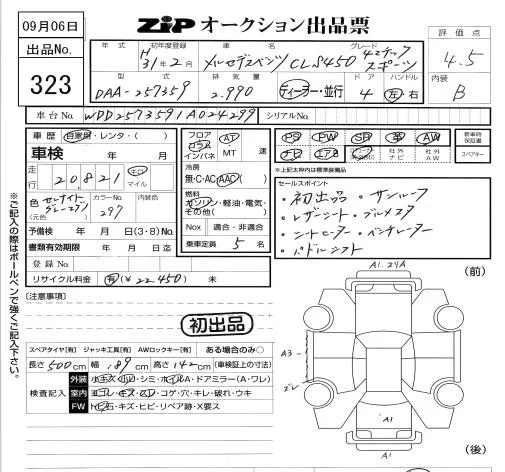 09月06日
ZIP オークション出品票
評価点
4.5
出品No.
323
年式 初年度登録 車名 グレード
H31年2月 メルセデスベンツ CLS450 4マチック スポーツ
型式 排気量 ドア ハンドル
DAA-257359 2.990 ディーラー・並行 4 左 右
内装
B
車台No. WDD2573591A024299 シリアルNo.
車歴 自家用・レンタ・( )
車検 年 月
走行 20.821 キロ マイル
色 (元色) セレナイトグレー カラーNo. 297 内装色
予備検 年 月 日(3・8)No.
書類有効期限 年 月 日迄
登録No.
リサイクル料金 有(¥22.450) 未
フロア コラム インパネ AT・MT 速
冷房 無・C・AC(AAC)
燃料 ガソリン・軽油・電気・その他( )
Nox 適合・非適合
乗車定員 5 名
PS PW SR 革 AW 新車時保証書
ナビ エアB 社外ナビ 社外AW スペアキー
※上記太枠内は標準装備品
セールスポイント
・初出品 ・サンルーフ
・レザーシート ・ブルメスタ
・シートヒーター ・ベンチレーター
・パドルシフト
※ご記入の際はボールペンで強くご記入下さい。
[注意事項]
初出品
スペアタイヤ[有] ジャッキ工具[有] AWロックキー[有] ある場合のみ○
長さ 500cm 幅 189cm 高さ 142cm (車検証上の寸法)
検査記入
外装 小キズ・凹・シミ・ホイルA・ドアミラー(A・ワレ)
室内 ヨゴレ・キズ・スレ・コゲ・穴・キレ・破れ・ウキ
FW トビ石・キズ・ヒビ・リペア跡・X要ス
(前)
A3
スレ
A1
A1
(後)